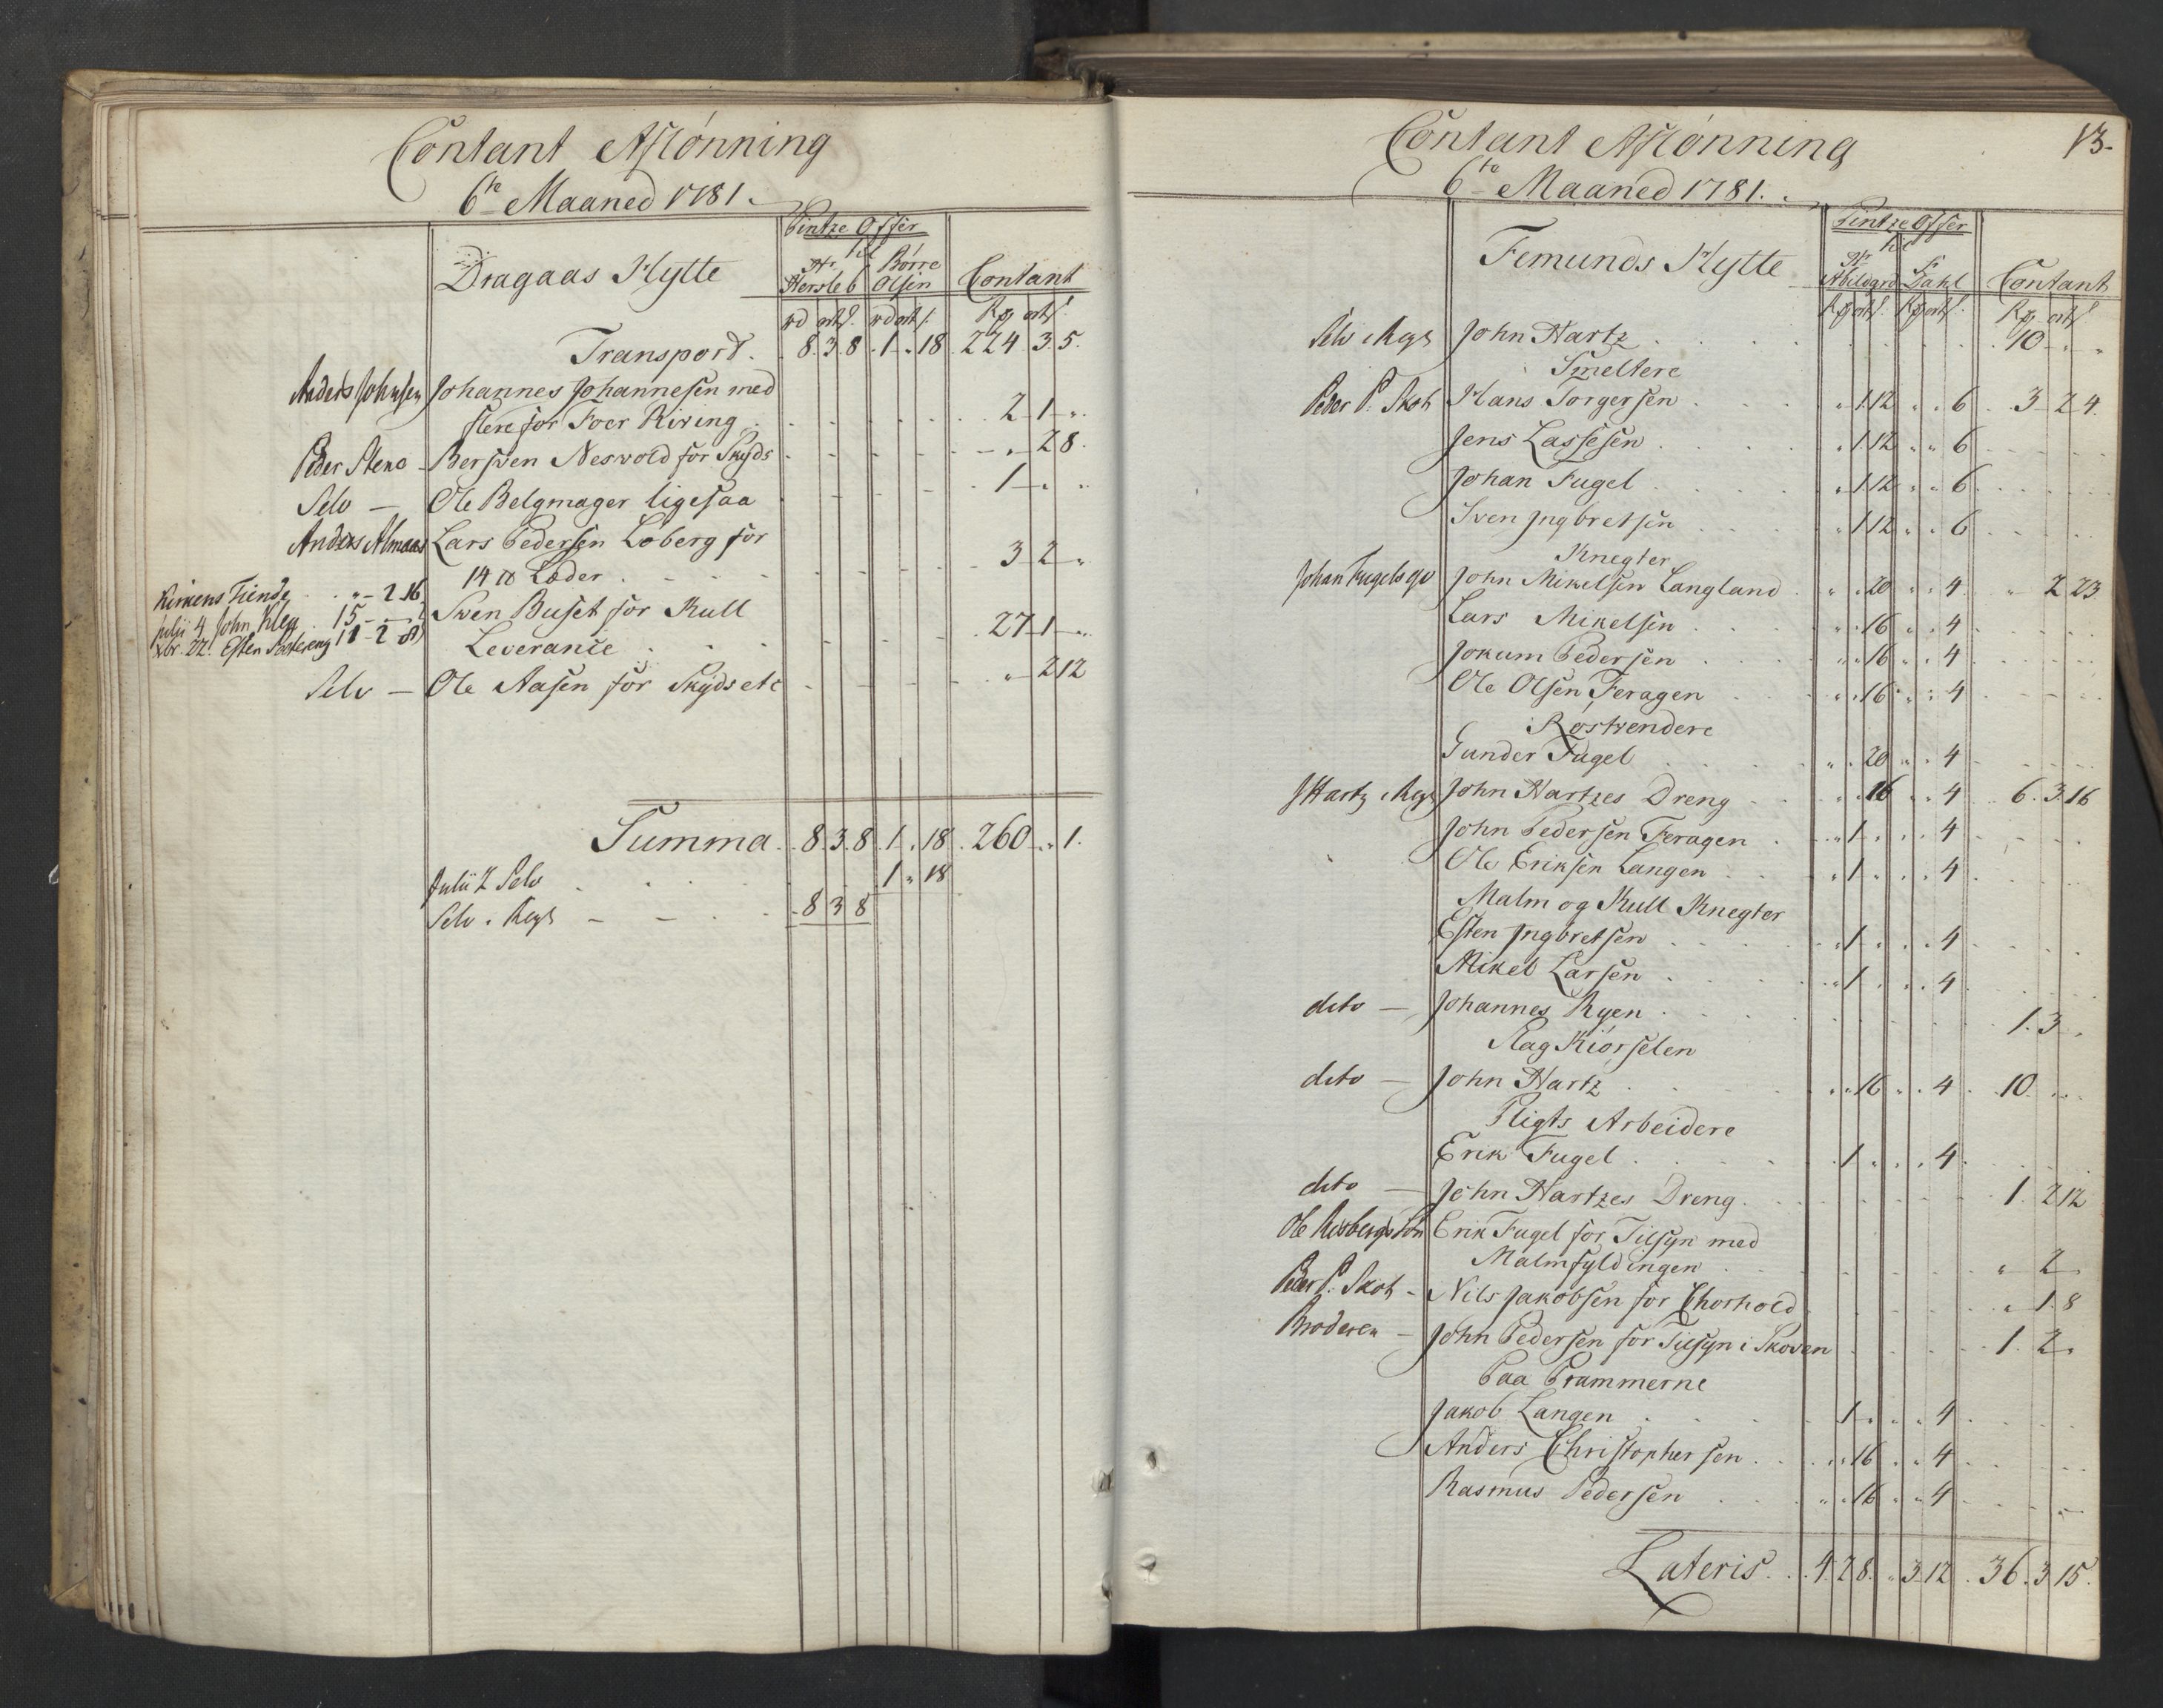 Contant Aflønning
6te Maaned 1781.
Pintze Offer
til
Dragaas Hytte Hr Hersleb Børre Olsen Contant
rd ort s. rd ort s. Rd ort s.
Transport . 8. 3. 8 . 1 . " . 18 . 224 . 3. 5.
Anders Johnsen Johannes Johannesen med
flere for Foer Kiøring . 2 - 1 - ".
Peder Steno - Berswen Neswold for Skyds - " - 2 8.
Selv — Ole Belgmager ligesaa 1 - " "
Anders Almaas Lars Pedersen Loberg for
14 tt Læder . 3 - 2 - "
Kirkens Tiende . . " - 2 . 16
Julii 4 John Kleg . 15 - - Swen Buset for Kull
xbr. 22. Esten Sætereng 11 - 2 8 Leverance . 27 - 1 - ".
Selv — Ole Aasen for Skyds etc " - 2 12
Summa . 8. 3. 8 . 1 . " . 18 . 260 . " . 1.
Julii 7 Selv 1 " 18
Selv . Regn - 8 3 8
Contant Aflønning 13.
6te Maaned 1781.
Pintze Offer
til
Femunds Hytte Hr Abildgard Hr Dahl Contant
Rd ort s. Rd ort s. Rd ort s.
Selv i Regn John Hartz . 10 . " . "
Smeltere
Peder P. Skot Hans Torgersen . " 1. 12 . " . 6 . 3 - 2 4.
Jens Lassesen . " 1. 12 " " 6
Johan Fugel . " 1. 12 " " 6
Swen Ingbretsen " 1. 12 " " 6
Knegter
Johan Fugels John Mikelsen Langland . " . 20 " . 4 . " 2 23
Lars Mikelsen . " 16 " . 4
Jokum Pedersen . " " 16 " . 4
Ole Olsen Feragen " . 16 " " 4
Røstwendere
Gunder Fugel " . 20 " . 4
J Hartz i Regn John Hartzes Dreng " . 16 " . 4 . 6. 3. 16
John Pedersen Feragen . " 1 . " . . 4
Ole Eriksen Langen " 1 . " . . 4
Malm og Kull Knegter
Esten Ingbretsen " 1 . " . . 4
Mikel Larsen . " 1 . " . . 4
dito — Johannes Ryen . 1. 3 .
Slag Kiørselen
dito — John Hartz . " . 16 " . 4 . 10 . " .
Pligts Arbeidere
Erik Fugel . 1 . " . . 4
dito — John Hartzes Dreng . 1. 2 12
Erik Fugel for Tilsyn med
Malmfyldingen . " 2 -
Peder P. Skot - Nils Jakobsen for Chorhold . " 1. 8
Broderen - John Pedersen for Tilsyn i Skoven 1. 2 .
Paa Prammerne
Jakob Langen . 1 . " . . 4
Anders Christophersen . " . 16 " . 4
Rasmus Pedersen " . 16 " . 4
Lateris . . 4. 2 8. " 3. 12 . 36 . 3 15.